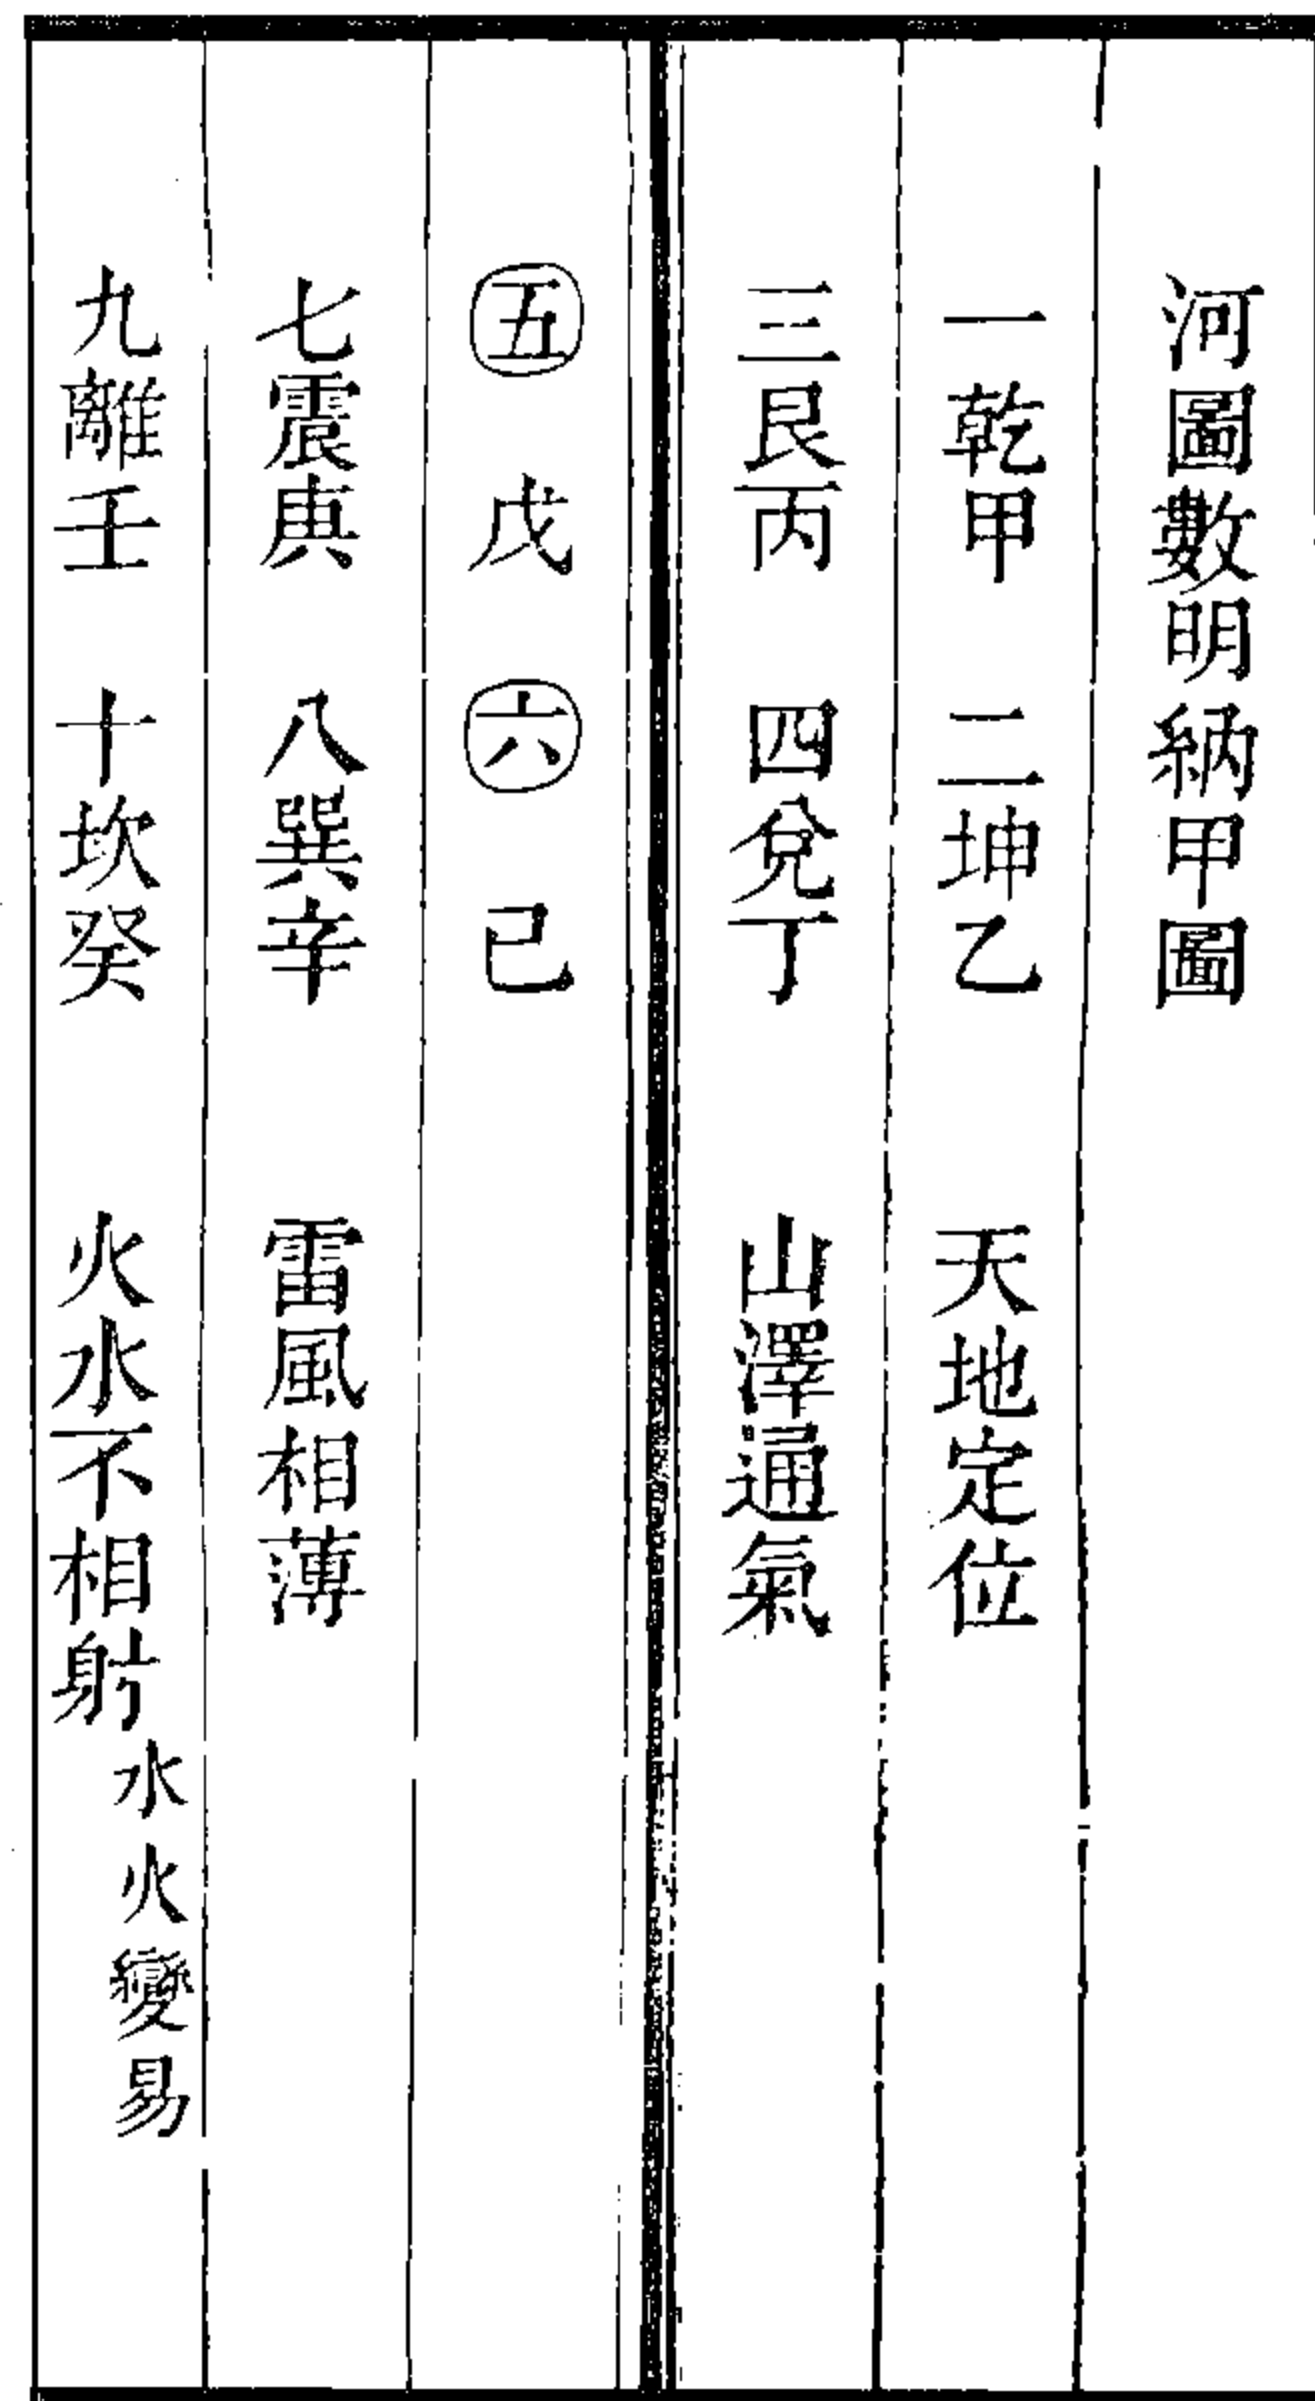 河圖數明納甲圖
一乾甲　二坤乙　天地定位
三艮丙　四兌丁　山澤通氣
五　戊　六　己
七震庚　八巽辛　雷風相薄
九離壬　十坎癸　火水不相射水火變易